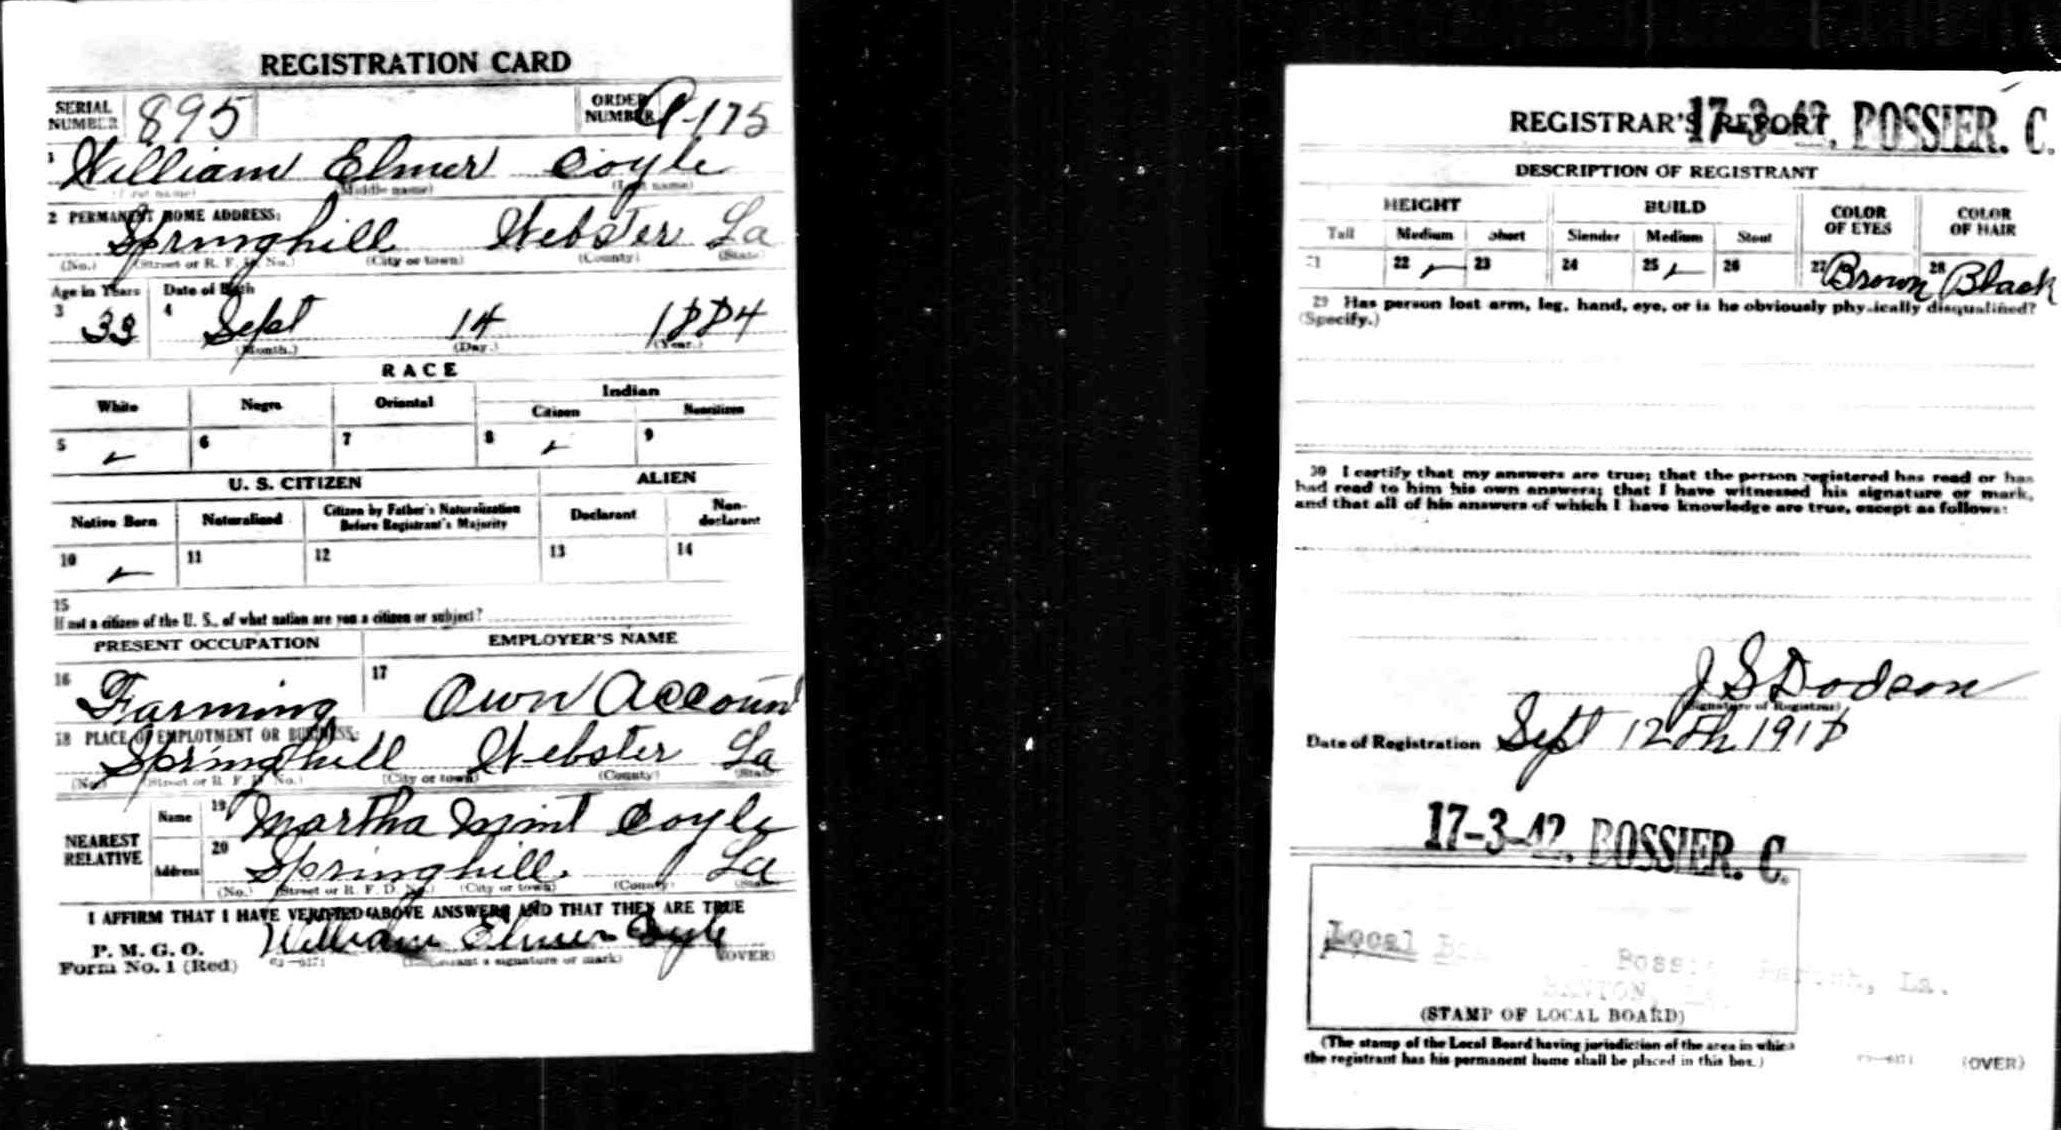 REGISTRATION CARD
SERIAL NUMBER 895 ORDER NUMBER A-175
1 William Elmer Coyle
(First name) (Middle name) (Last name)
2 PERMANENT HOME ADDRESS:
Springhill Webster La
(No.) (Street or R. F. D. No.) (City or town) (County) (State)
Age in Years Date of Birth
3 33 4 Sept 14 1884
(Month.) (Day.) (Year.)
RACE
White Negro Oriental Indian
Citizen Noncitizen
5 6 7 8 9
U. S. CITIZEN ALIEN
Native Born Naturalized Citizen by Father's Naturalization Before Registrant's Majority Declarant Non-declarant
10 11 12 13 14
15
If not a citizen of the U. S., of what nation are you a citizen or subject?
PRESENT OCCUPATION EMPLOYER'S NAME
16 Farming 17 Own Account
18 PLACE OF EMPLOYMENT OR BUSINESS:
Springhill Webster La
(No.) (Street or R. F. D. No.) (City or town) (County) (State)
NEAREST RELATIVE
Name 19 Martha Mint Coyle
Address 20 Springhill La
(No.) (Street or R. F. D. No.) (City or town) (County) (State)
I AFFIRM THAT I HAVE VERIFIED ABOVE ANSWERS AND THAT THEY ARE TRUE
P. M. G. O.
Form No. 1 (Red) William Elmer Coyle
(Registrant's signature or mark) (OVER)
REGISTRAR'S REPORT 17-3-42. BOSSIER. C.
DESCRIPTION OF REGISTRANT
HEIGHT BUILD COLOR OF EYES COLOR OF HAIR
Tall Medium Short Slender Medium Stout
21 22 23 24 25 26 27 Brown 28 Black
29 Has person lost arm, leg, hand, eye, or is he obviously physically disqualified?
(Specify.)
30 I certify that my answers are true; that the person registered has read or has
had read to him his own answers; that I have witnessed his signature or mark,
and that all of his answers of which I have knowledge are true, except as follows:
J S Dodson
(Signature of Registrar)
Date of Registration Sept 12th 1918
17-3-42. BOSSIER. C.
Local Parish, La.
BENTON, La.
(STAMP OF LOCAL BOARD)
(The stamp of the Local Board having jurisdiction of the area in which
the registrant has his permanent home shall be placed in this box.)
(OVER)